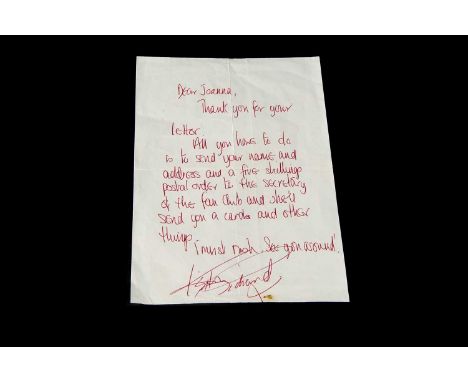 Dear Joanna,
Thank you for your
letter.
All you have to do
is to send your name and
address and a five shillings
postal order to the secretary
of the fan club and she'll
send you a card and other
things
I must rush. See you around.
Keith Richard